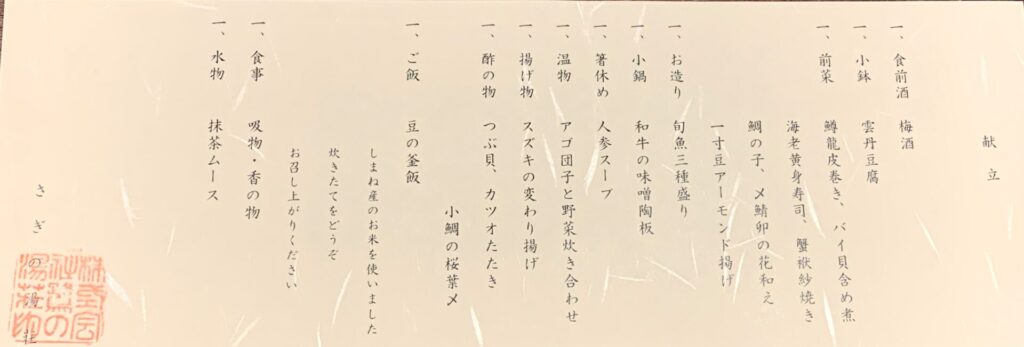 献立
一、食前酒 梅酒
一、小鉢 雲丹豆腐
一、前菜 鱒龍皮巻き、バイ貝含め煮
海老黄身寿司、蟹袱紗焼き
鯛の子、〆鯖卯の花和え
一寸豆アーモンド揚げ
一、お造り 旬魚三種盛り
一、小鍋 和牛の味噌陶板
一、箸休め 人参スープ
一、温物 アゴ団子と野菜炊き合わせ
一、揚げ物 スズキの変わり揚げ
一、酢の物 つぶ貝、カツオたたき
小鯛の桜葉〆
一、ご飯 豆の釜飯
しまね産のお米を使いました
炊きたてをどうぞ
お召し上がりください
一、食事 吸物・香の物
一、水物 抹茶ムース
さぎの湯荘
株式会
社鷺の
湯荘印